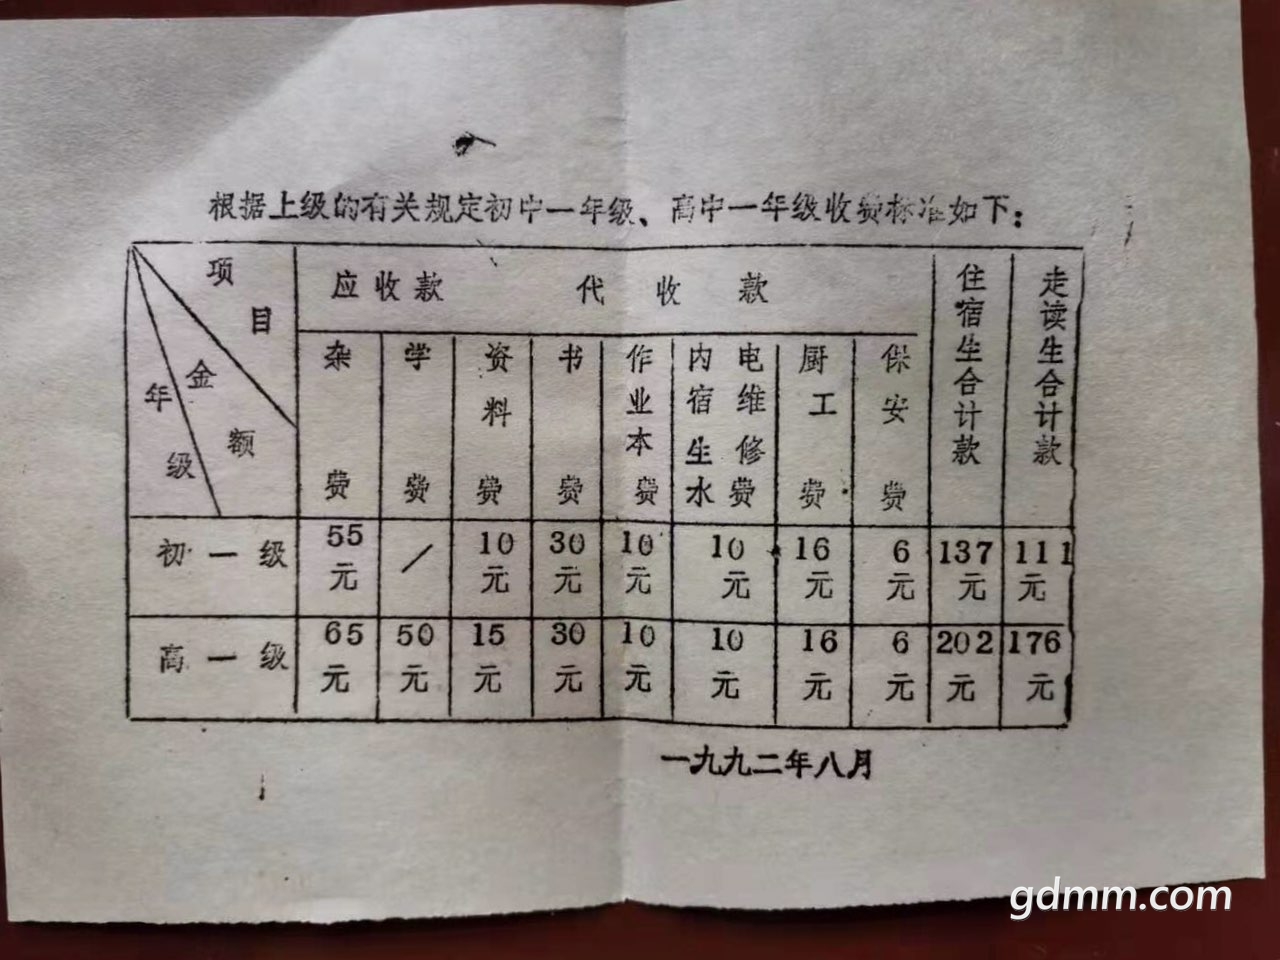 根据上级的有关规定初中一年级、高中一年级收费标准如下：
项目 金额 年级 应收款 代收款 住宿生合计款 走读生合计款
杂费 学费 资料费 书费 作业本费 内宿生水电维修费 厨工费 保安费
初一级 55元 / 10元 30元 10元 10元 16元 6元 137元 111元
高一级 65元 50元 15元 30元 10元 10元 16元 6元 202元 176元
一九九二年八月
gdmm.com